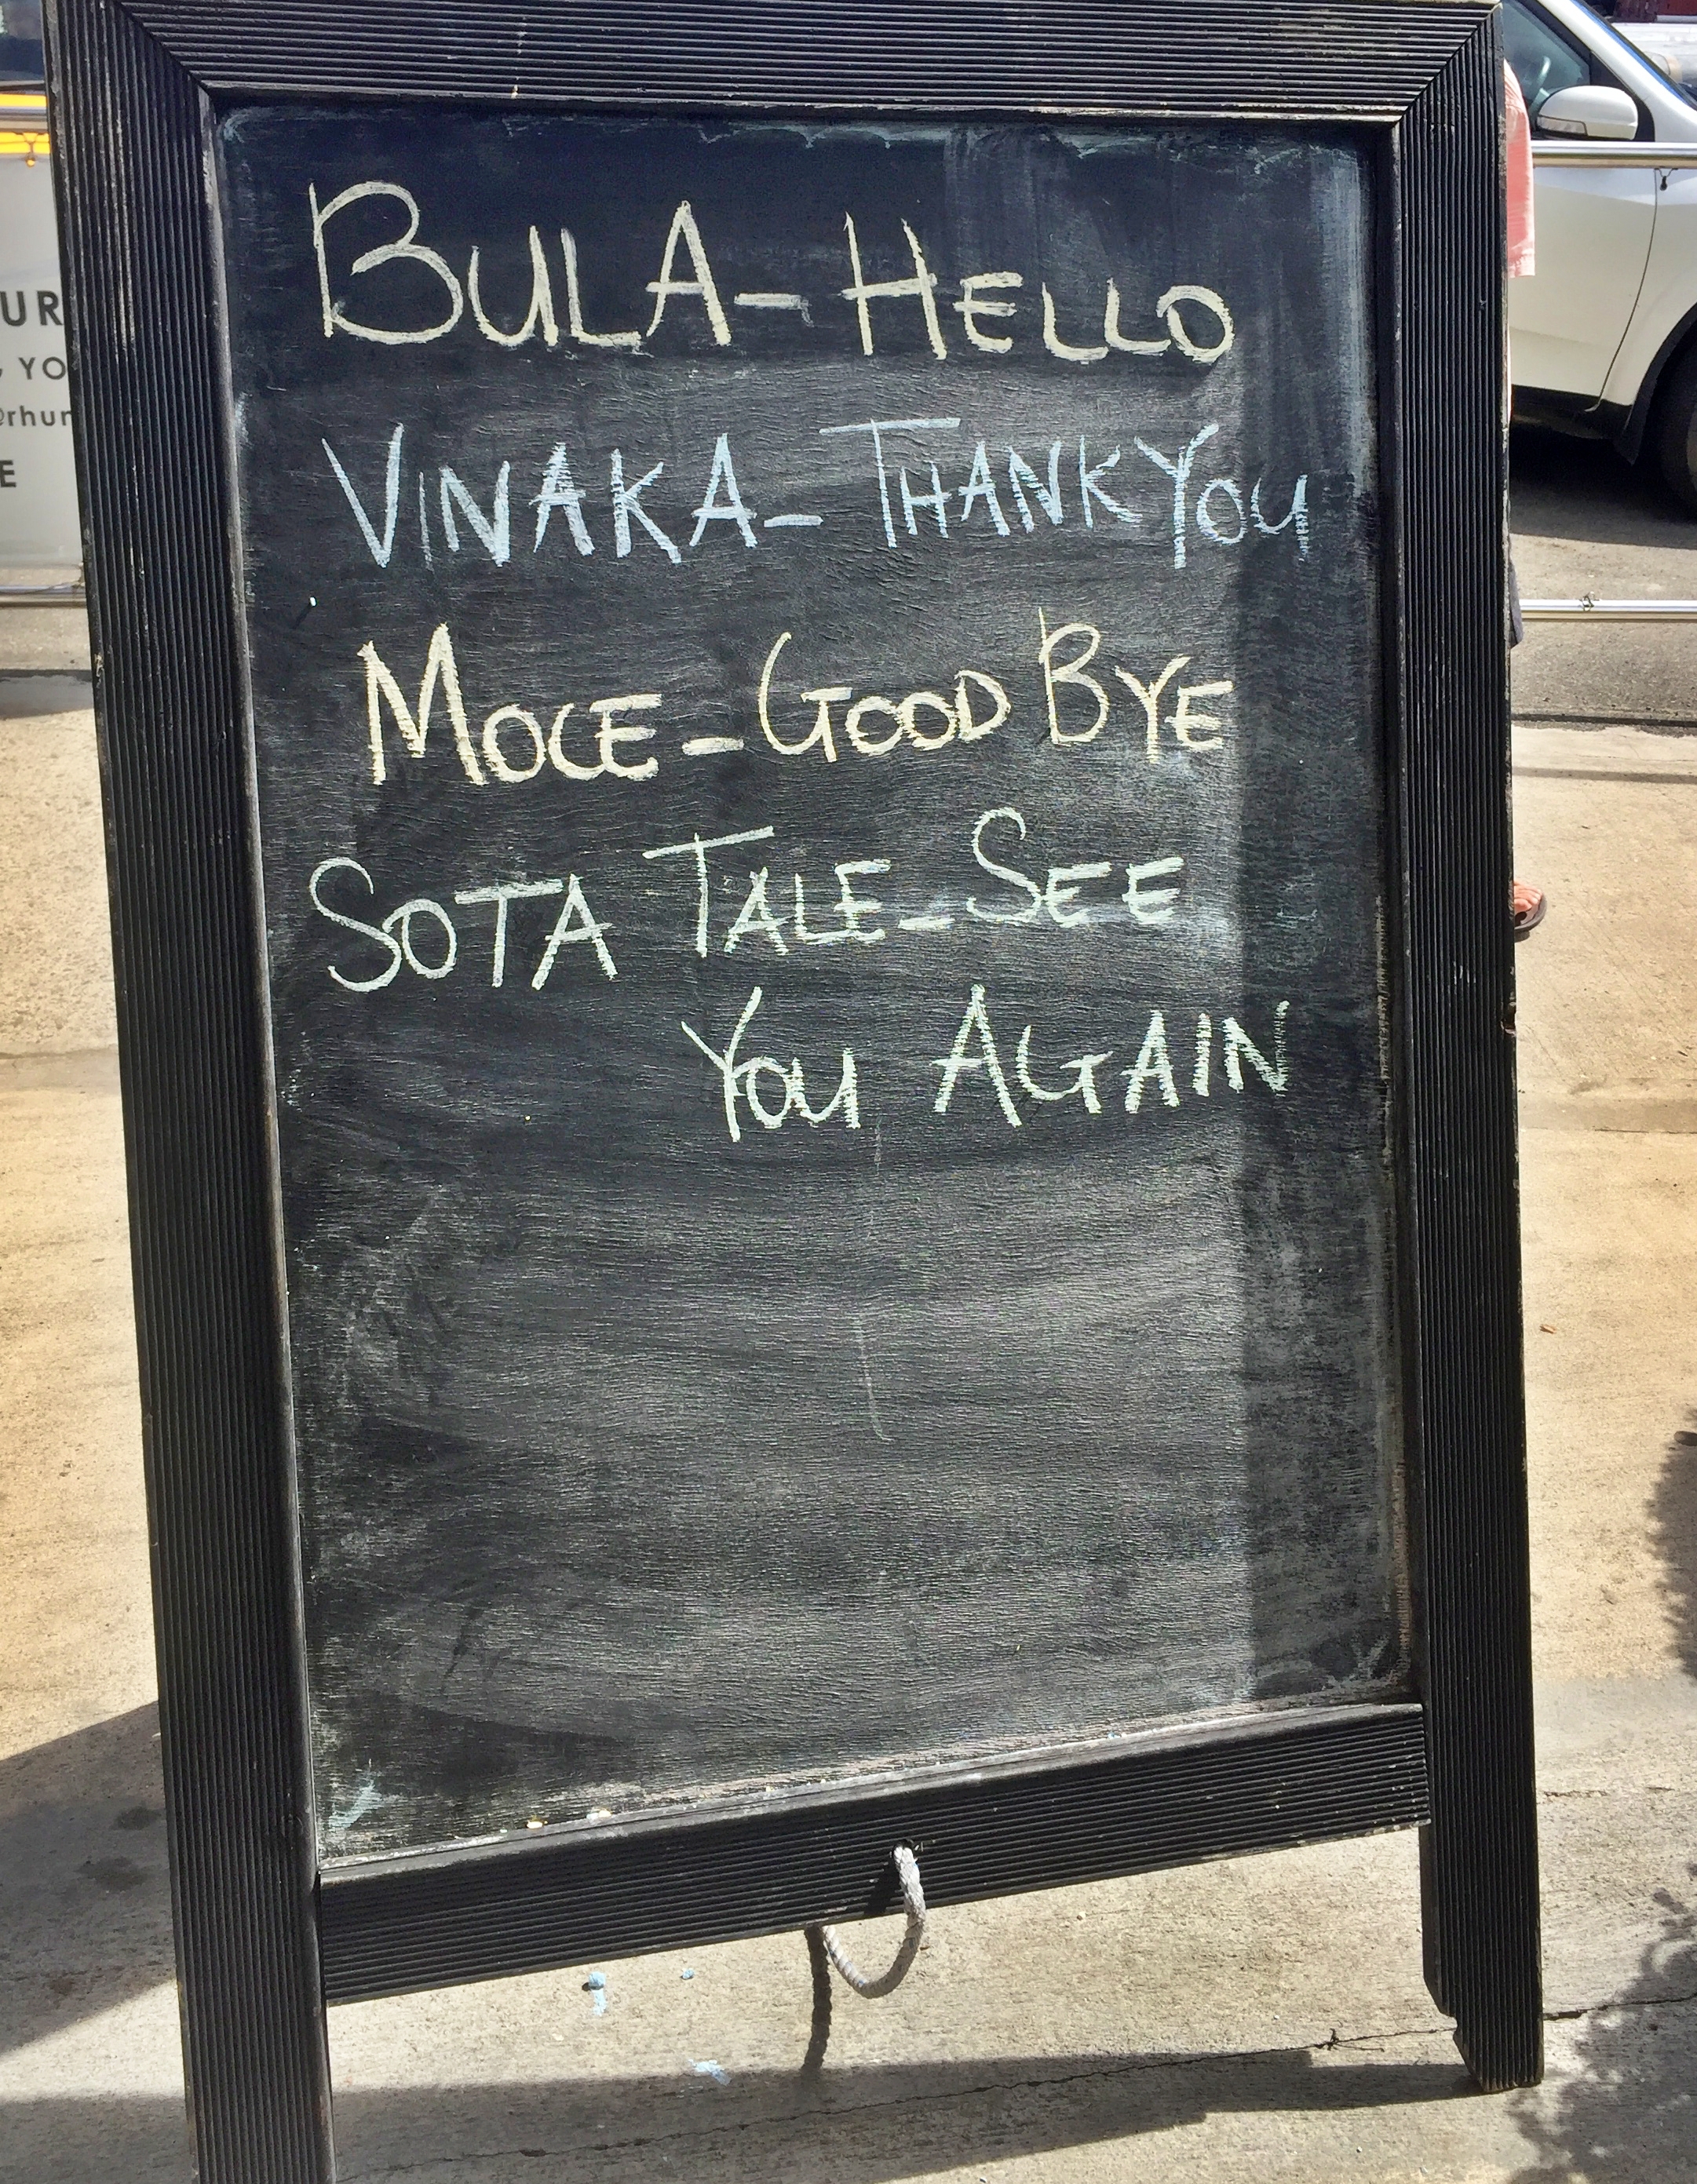 BULA - HELLO
VINAKA - THANK YOU
MOCE - GOOD BYE
SOTA TALE - SEE
YOU AGAIN
UR
YO
@rhur
E